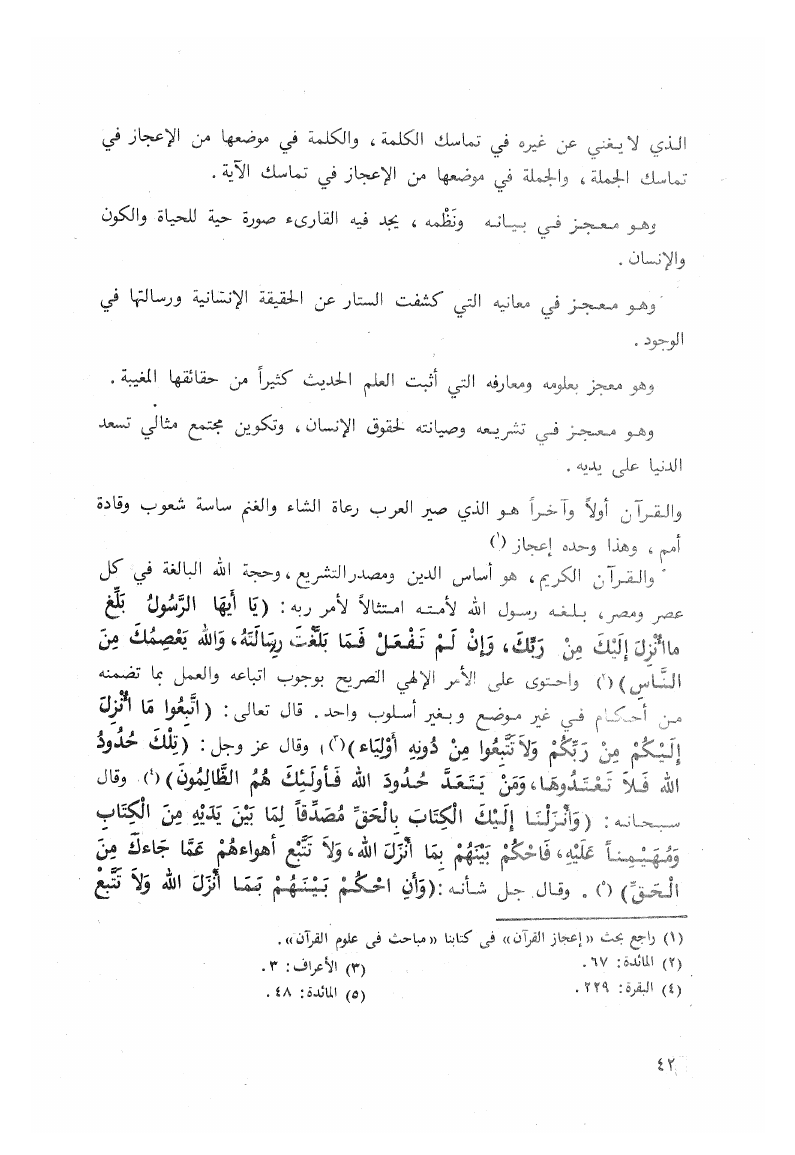 الذي لا يغني عن غيره في تماسك الكلمة، والكلمة في موضعها من الإعجاز في
تماسك الجملة، والجملة في موضعها من الإعجاز في تماسك الآية.
وهو معجز في بيانه ونَظْمه، يجد فيه القارىء صورة حية للحياة والكون
والإنسان.
وهو معجز في معانيه التي كشفت الستار عن الحقيقة الإنسانية ورسالتها في
الوجود.
وهو معجز بعلومه ومعارفه التي أثبت العلم الحديث كثيراً من حقائقها المغيبة.
وهو معجز في تشريعه وصيانته لحقوق الإنسان، وتكوين مجتمع مثالي تسعد
الدنيا على يديه.
والقرآن أولاً وآخراً هو الذي صير العرب رعاة الشاء والغنم ساسة شعوب وقادة
أمم، وهذا وحده إعجاز (١)
والقرآن الكريم، هو أساس الدين ومصدر التشريع، وحجة الله البالغة في كل
عصر ومصر، بلغه رسول الله لأمته امتثالاً لأمر ربه: (يَا أَيهَا الرَّسُولُ بَلِّغ
ما أُنْزِلَ إِلَيْكَ مِنْ رَبِّكَ، وَإِنْ لَمْ تَفْعَلْ فَمَا بَلَّغْتَ رِسَالَتَهُ، وَالله يَعْصِمُكَ مِنَ
النَّاسِ) (٢) واحتوى على الأمر الإلهي الصريح بوجوب اتباعه والعمل بما تضمنه
من أحكام في غير موضع وبغير أسلوب واحد. قال تعالى: (اتَّبِعُوا مَا أُنْزِلَ
إِلَيْكُمْ مِنْ رَبِّكُمْ وَلاَ تَتَّبِعُوا مِنْ دُونِهِ أَوْلِيَاء) (٣)، وقال عز وجل: (تِلْكَ حُدُودُ
الله فَلاَ تَعْتَدُوهَا، وَمَنْ يَتَعَدَّ حُدُودَ الله فَأولَئِكَ هُمُ الظَّالِمُونَ) (٤) وقال
سبحانه: (وَأَنْزَلْنَا إِلَيْكَ الْكِتَابَ بِالْحَقِّ مُصَدِّقاً لِمَا بَيْنَ يَدَيْهِ مِنَ الْكِتَابِ
وَمُهَيْمِناً عَلَيْهِ، فَاحْكُمْ بَيْنَهُمْ بِمَا أَنْزَلَ الله، وَلاَ تَتَّبِعْ أهواءهُمْ عَمَّا جَاءكَ مِنَ
الْحَقِّ) (٥). وقال جل شأنه: (وَأَنِ احْكُمْ بَيْنَهُمْ بِمَا أَنْزَلَ الله وَلاَ تَتَّبِعْ
(١) راجع بحث «إعجاز القرآن» في كتابنا «مباحث في علوم القرآن».
(٢) المائدة: ٦٧. (٣) الأعراف: ٣.
(٤) البقرة: ٢٢٩. (٥) المائدة: ٤٨.
٤٢